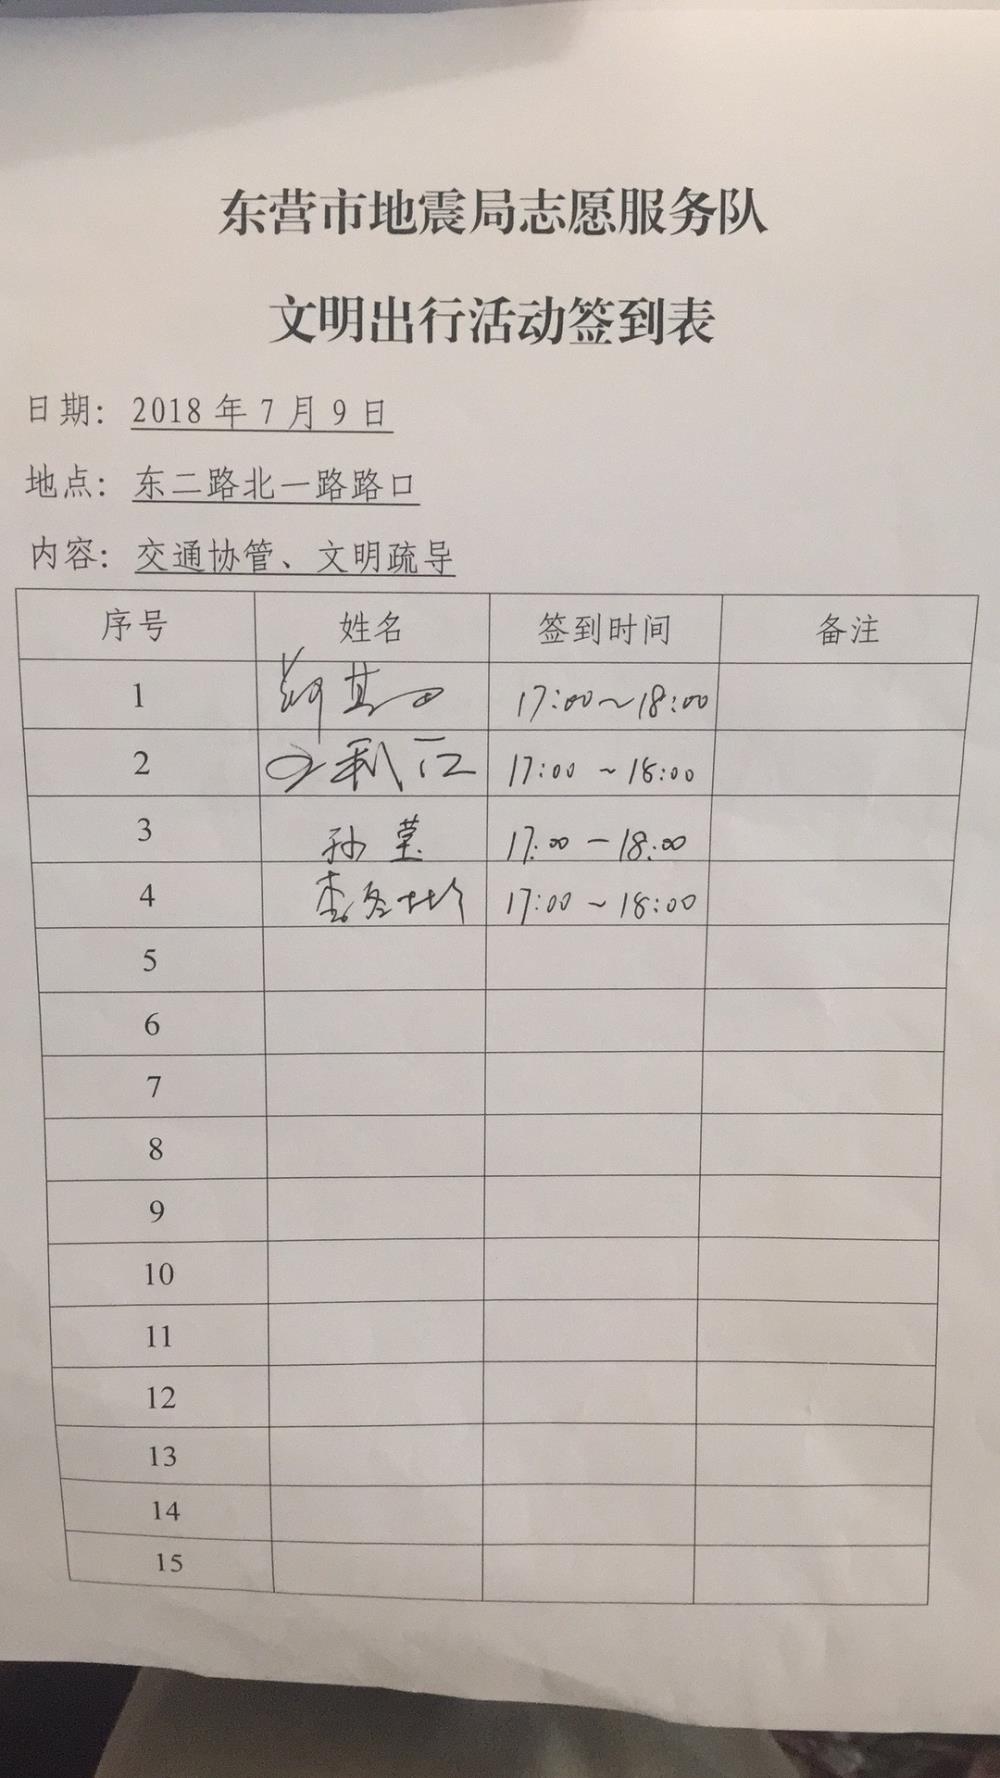 东营市地震局志愿服务队
文明出行活动签到表
日期: 2018 年 7 月 9 日
地点: 东二路北一路路口
内容: 交通协管、文明疏导
序号 姓名 签到时间 备注
1 17:00~18:00
2 17:00 ~18:00
3 孙莹 17:00 -18:00
4 17:00 ~18:00
5
6
7
8
9
10
11
12
13
14
15